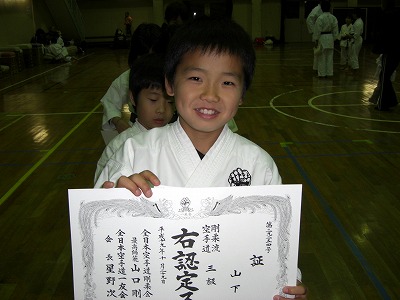 証
山下
剛柔流
空手道 三級
右認定ス
全日本空手道剛柔会
最高師範 山口剛
全日本空手道一友会
会長 星野次